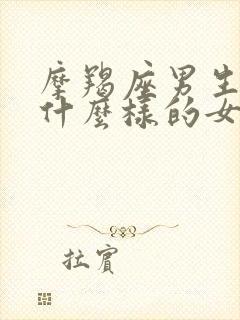 摩羯座男生
什麼樣的女
拉賓